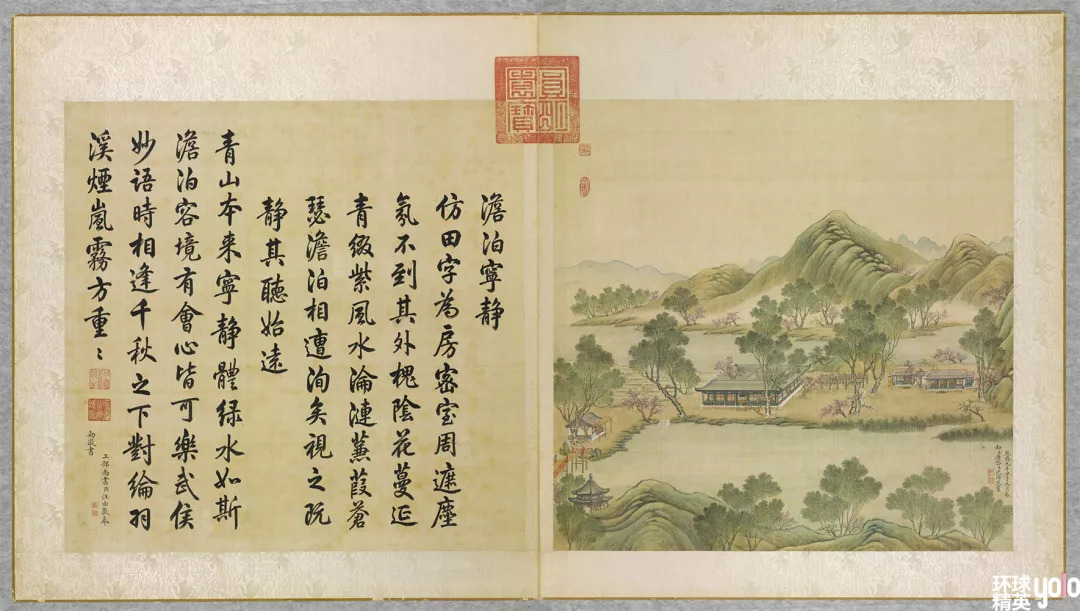 澹泊寧靜
仿田字為房密室周遮塵
氛不到其外槐陰花蔓延
青綴紫風水淪漣蒹葭蒼
瑟澹泊相遭洵矣視之既
靜其聽始遠
青山本来寧靜體緑水如斯
澹泊容境有會心皆可樂武侯
妙語時相逢千秋之下對綸羽
溪煙嵐霧方重〻
工部尚書臣汪由敦奉
勅敬書
环球
精英
yolo